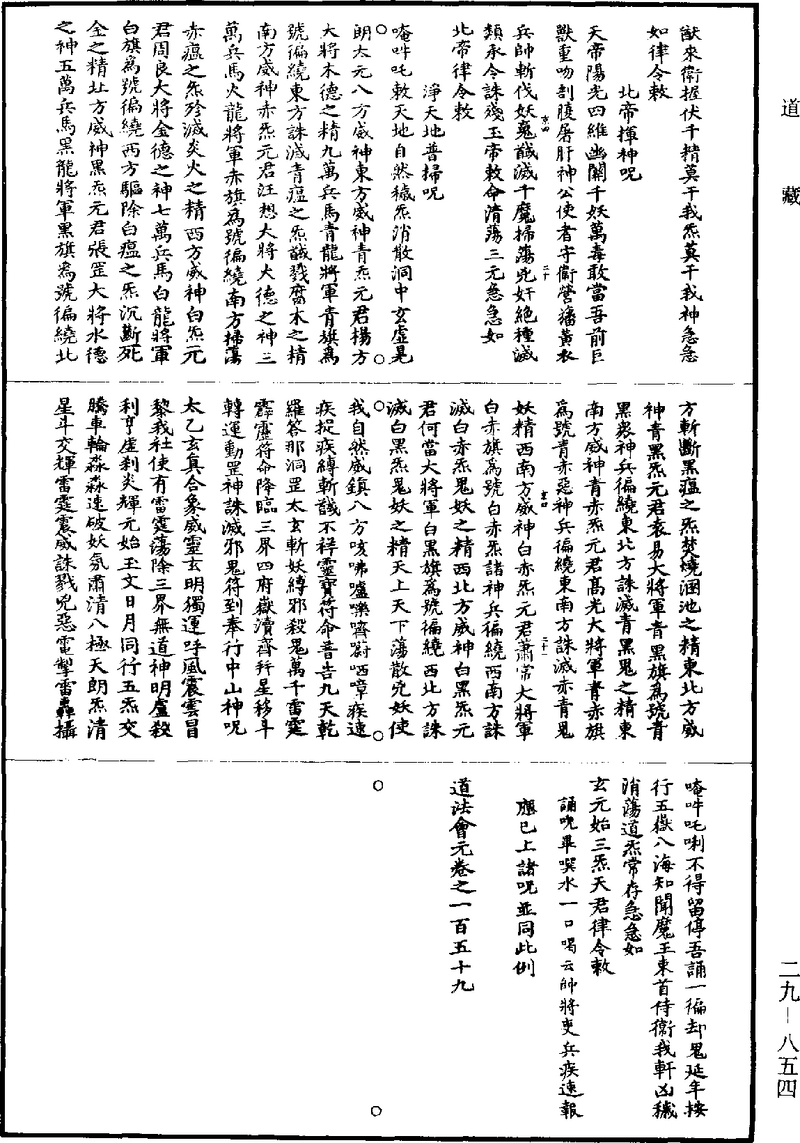 道藏
獸來衛握伏千精莫干我炁莫干我神急急
如律令敕
北帝揮神呪
天帝陽光四維幽關千妖萬毒敢當吾前巨
獸重吻刳腹屠肝神公使者守衛營藩黃衣
兵帥斬伐妖魂馘滅千魔掃蕩兇奸絕種滅
類承令誅殘玉帝敕命清蕩三元急急如
北帝律令敕
淨天地普掃呪
唵吽吒敕天地自然穢炁消散洞中玄虛晃
朗太元八方威神東方威神青炁元君楊方
大將木德之精九萬兵馬青龍將軍青旗爲
號徧繞東方誅滅青瘟之炁馘戮腐木之精
南方威神赤炁元君汪想大將火德之神三
萬兵馬火龍將軍赤旗爲號徧繞南方掃蕩
赤瘟之炁殄滅炎火之精西方威神白炁元
君周良大將金德之神七萬兵馬白龍將軍
白旗爲號徧繞西方驅除白瘟之炁沉斷死
金之精北方威神黑炁元君張罡大將水德
之神五萬兵馬黑龍將軍黑旗爲號徧繞北
方斬斷黑瘟之炁焚燒溷池之精東北方威
神青黑炁元君袁易大將軍青黑旗爲號青
黑衆神兵徧繞東北方誅滅青黑鬼之精東
南方威神青赤炁元君高光大將軍青赤旗
爲號青赤惡神兵徧繞東南方誅滅赤青鬼
妖精西南方威神白赤炁元君蕭常大將軍
白赤旗爲號白赤炁諸神兵徧繞西南方誅
滅白赤炁鬼妖之精西北方威神白黑炁元
君何當大將軍白黑旗爲號徧繞西北方誅
滅白黑炁鬼妖之精天上天下蕩散兇妖使
我自然威鎮八方咳咈嚧嚛嚌㗭呬嘷疾速
疾捉疾縛斬馘不得靈寶符命普告九天乾
羅答那洞罡太玄斬妖縛邪殺鬼萬千雷霆
霹靂符命降臨三界四府嶽瀆齊奔星移斗
轉運動罡神誅滅邪鬼符到奉行中山神呪
太乙玄真合象威靈玄明獨運呼風震雲冒
黎我社使有雷霆蕩除三界無道神明盧殺
利亨虛刹炎輝元始玉文日月同行五炁交
騰車輪淼淼速破妖氛肅清八極天朗炁清
星斗交輝雷霆震威誅戮兇惡電掣雷轟攝
唵吽吒唎不得留停吾誦一徧却鬼延年按
行五嶽八海知聞魔王束首侍衛我軒凶穢
消蕩道炁常存急急如
玄元始三炁天君律令敕
誦呪畢噀水一口喝云帥將吏兵疾速報
應已上諸呪並同此例
道法會元卷之一百五十九
二九–八五四